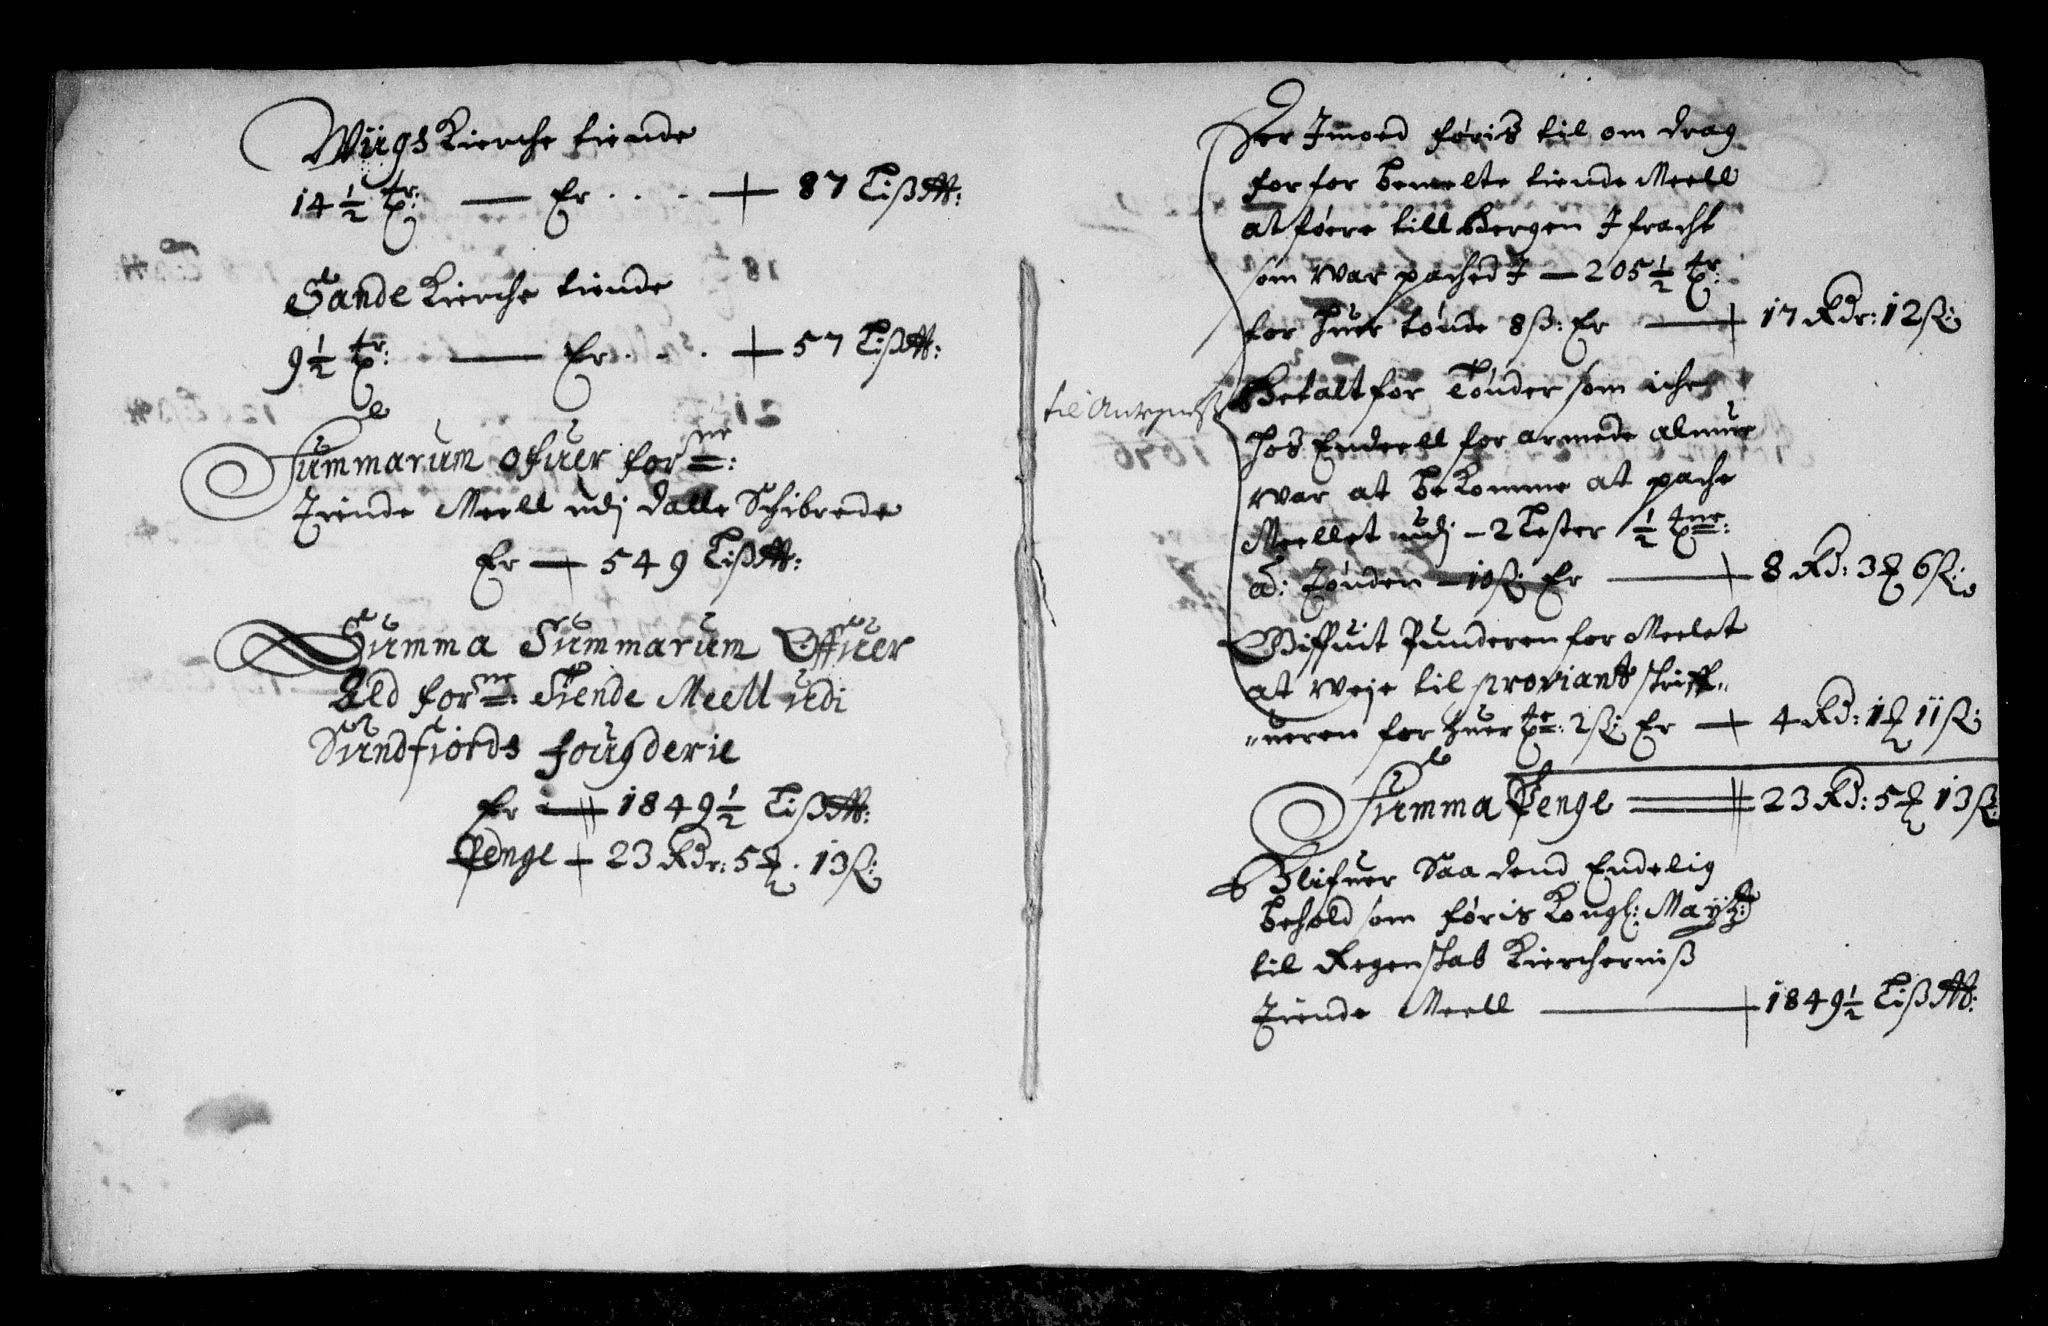 Wiigs Kierche tiende
14 1/2 tr: — Er . . . — 87 Lißlb:
Sande Kierche tiende
9 1/2 tr: — Er . . . — 57 Lißlb:
Summarum ofuer forne:
Tiende Meell udj Dalle Schibrede
Er — 549 Lißlb:
Summa Summarum Offuer
Ald forne: Tiende Meell udi
Sundfiords fougderie
Er — 1849 1/2 Lißlb:
Penge — 23 Rdr: 5 ℔. 13 ß:
Her Imoed føris til om drag
for for bemelte tiende Meell
at føere till Bergen I fracht
som war pached I — 205 1/2 tr:
for huer tønde 8 ß: Er — 17 Rdr: 12 ß:
til
Betalt for Tønder som iche
hos Endeell for armede almue
war at bekomme at pache
Meellet udj — 2 Lester 1/2 tne:
a: Tønden — 10 ß: Er — 8 Rd: 3 ℔ 6 ß:
Giffuit Punderen for Meelet
at Weje til proviant schriff-
-ueren for huer te: 2 ß: Er — 4 Rd: 1 ℔ 11 ß:
Summa Penge — 23 Rd: 5 ℔ 13 ß:
Blifuer Saa dend Endelig
behold som føris Kongl: Mayt:
til Regenskab Kircherniß
Tiende Meell — 1849 1/2 Lißlb: